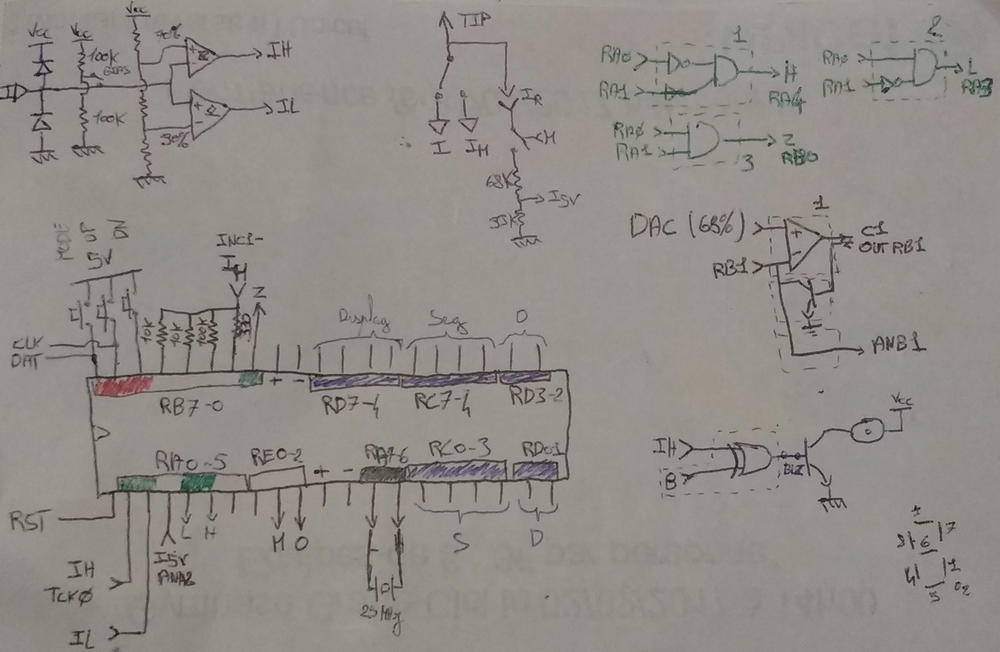 Vcc Vcc Vcc
100K
BIAS
100K
I
70%
30%
IH
IL
TIP
I
IH
IR
H
68K
I5V
33K
1
RA0
RA1
H
RA4
2
RA0
RA1
L
RA3
RA0
RA1
3
Z
RB0
DAC (68%)
RB1
1
C1
OUT RB1
ANB1
IH
B
BUZ
Vcc
MODE
UP
DN
5V
CLK
DAT
10K
10K
100K
330
INC1-
IH
Z
Display
Seg
D
RB7-0
+ -
RD7-4
RC7-4
RD3-2
RA0-5
RE0-2
+ -
RA76
RC0-3
RD0-1
RST
IH
TCK0
IL
I5V
ANA2
L
H
M O
25 MHz
S
D
1
3 6 7
4 1
5 02